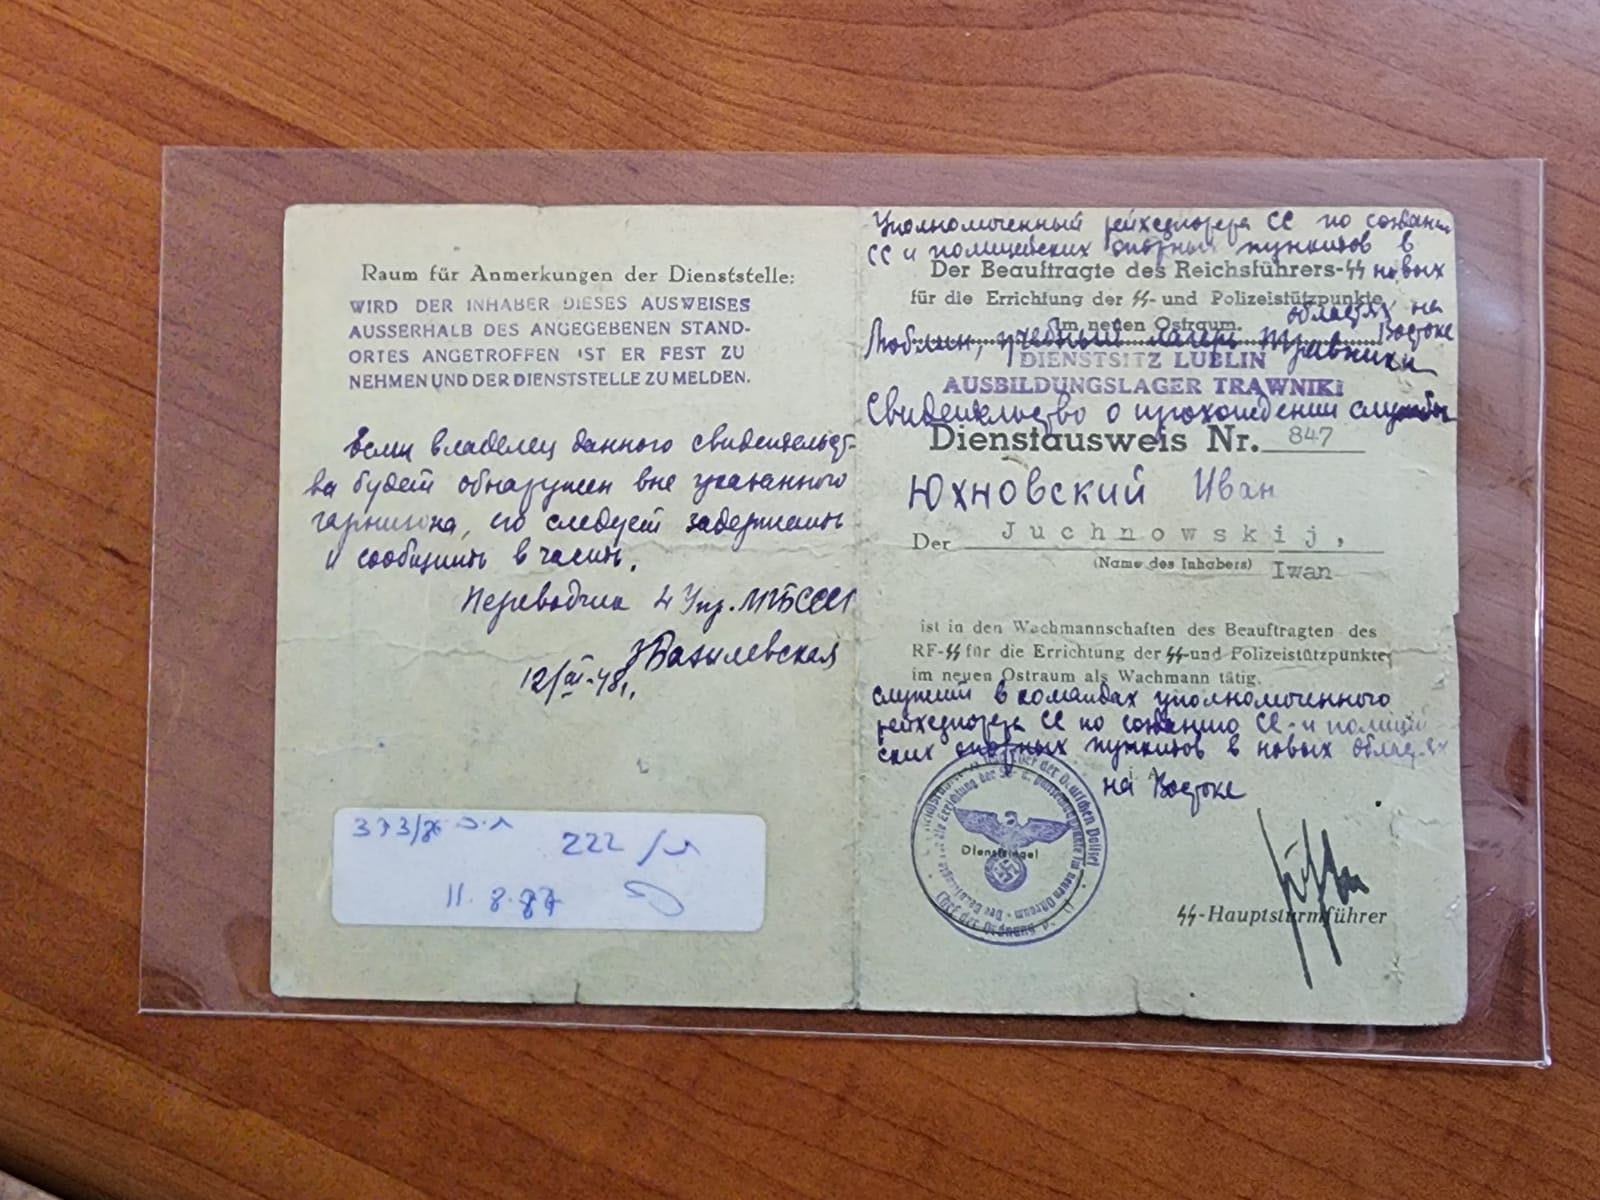 Raum für Anmerkungen der Dienststelle:
WIRD DER INHABER DIESES AUSWEISES
AUSSERHALB DES ANGEGEBENEN STAND-
ORTES ANGETROFFEN IST ER FEST ZU
NEHMEN UND DER DIENSTSTELLE ZU MELDEN.
Если владелец данного свидетельст-
ва будет обнаружен вне указанного
гарнизона, его следует задержать
и сообщить в часть.
Переводчик 4 Упр. МГБ СССР
Базилевская
12/III-48г.
373/86
222
11.8.87
Уполномоченный рейхсфюрера СС по создан
СС и полицейских опорных пунктов в
Der Beauftragte des Reichsführers-SS новых
für die Errichtung der SS- und Polizeistützpunkte
областях на
im neuen Ostraum. Востоке
Люблин, учебный лагерь Травники
DIENSTSITZ LUBLIN
AUSBILDUNGSLAGER TRAWNIKI
Свидетельство о прохождении службы
Dienstausweis Nr. 847
Юхновский Иван
Der Juchnowskij,
(Name des Inhabers) Iwan
ist in den Wachmannschaften des Beauftragten des
RF-SS für die Errichtung der SS-und Polizeistützpunkte
im neuen Ostraum als Wachmann tätig.
служит в командах уполномоченного
рейхсфюрера СС по созданию СС-и полицей
ских опорных пунктов в новых областях
на Востоке
Dienstsiegel
SS-Hauptsturmführer